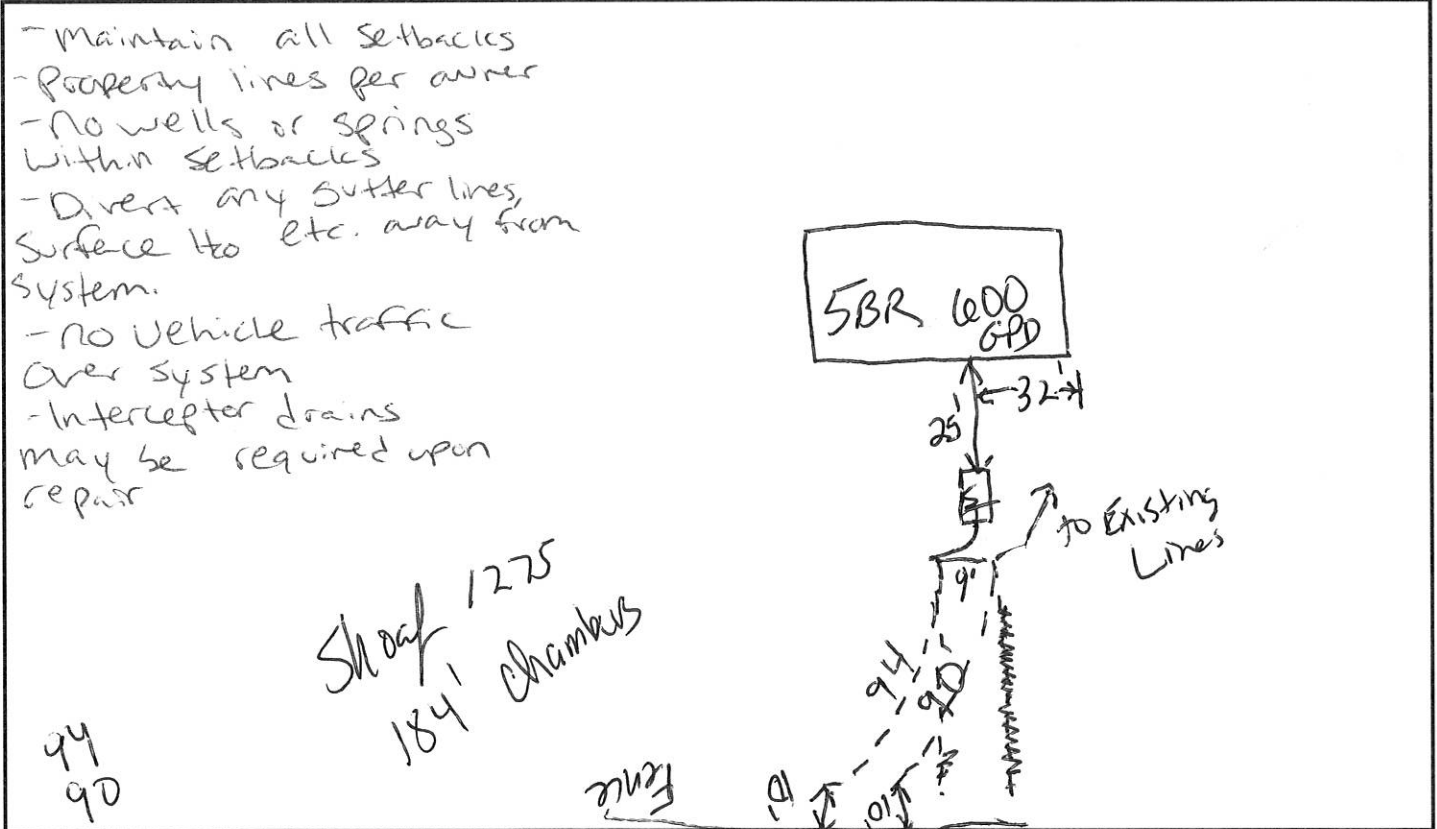 - Maintain all setbacks
- Property lines per owner
- no wells or springs
within setbacks
- Divert any gutter lines,
surface H2O etc. away from
system.
- no vehicle traffic
over system
- Interceptor drains
may be required upon
repair
5BR 600
GPD
32'
25'
to Existing
Lines
9'
94
90
Shoaf 1275
184' chambers
94
90
Fence
10'
10'